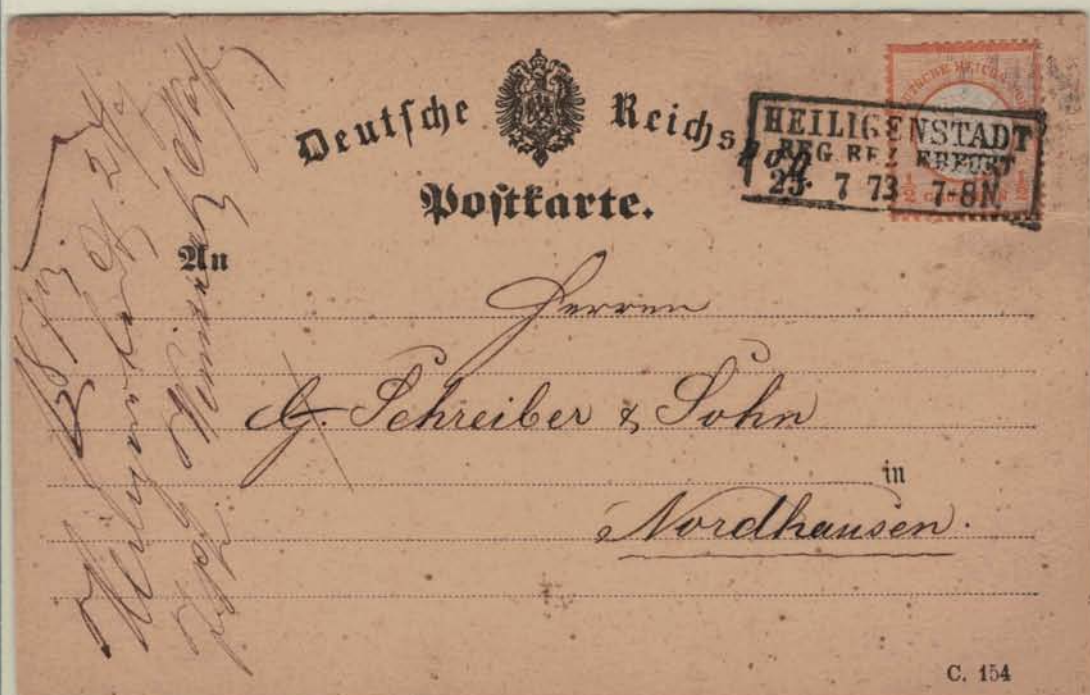 Deutsche Reichspost
Postkarte.
HEILIGENSTADT
REG. BEZ. ERFURT
25. 7 73 7-8N.
½ ½
An
Herren
G. Schreiber & Sohn
in
Nordhausen.
C. 154
1873
Heiligenstadt